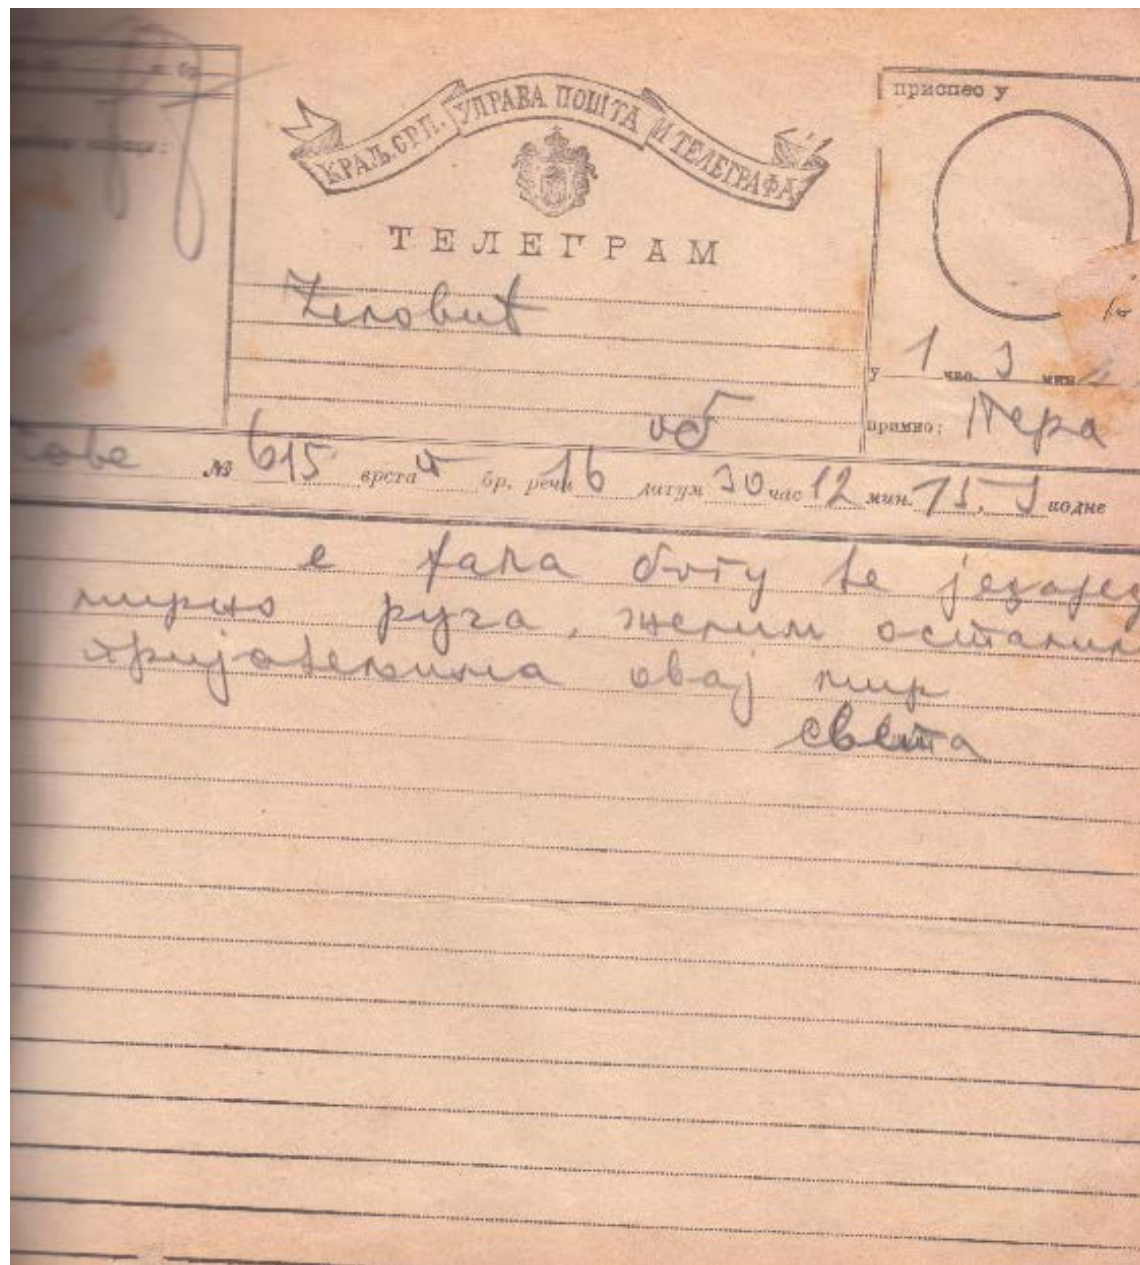 КРАЉ. СРП. УПРАВА ПОШТА И ТЕЛЕГРАФА
ТЕЛЕГРАМ
приспео у
у 1 час. 3 мин.
примио: Пера
№ 615 врста бр. речи 16 датум 30 час 12 мин. 15, подне
е фала богу те једаред
мирно руча, желим осталим
пријатељима овај мир
света